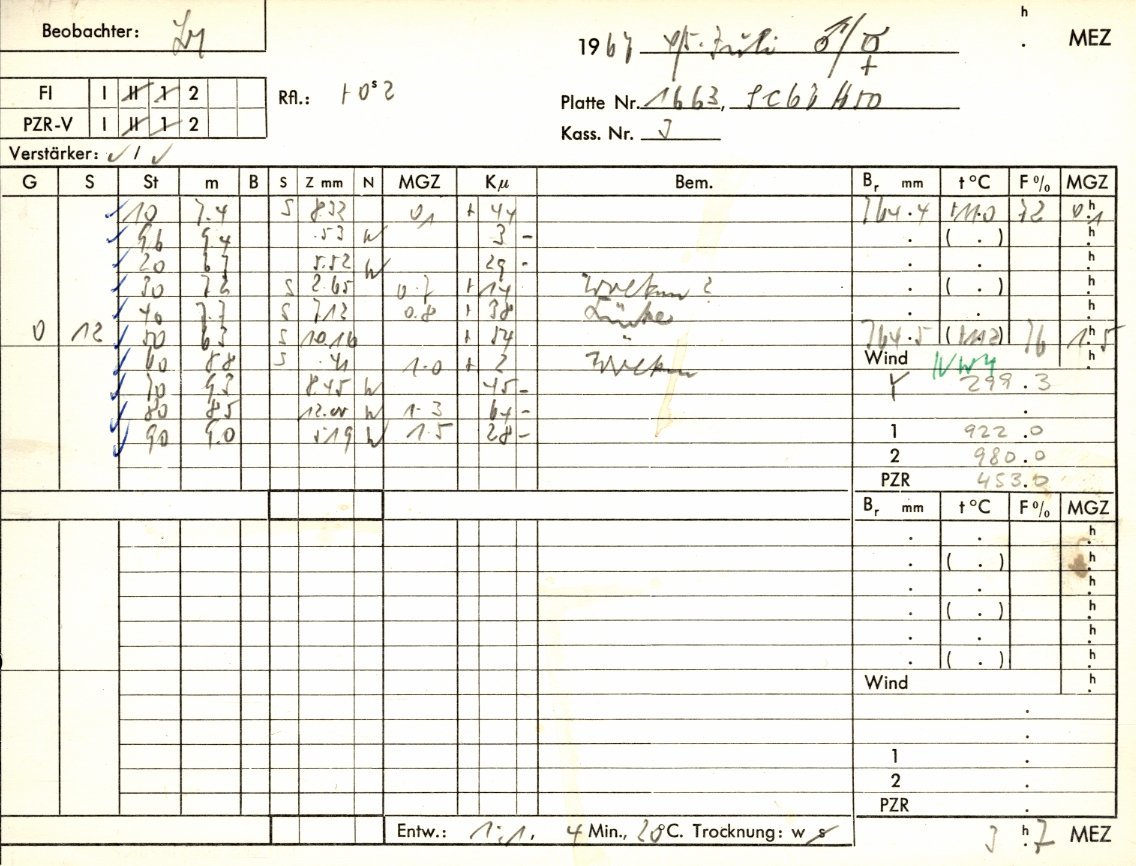 Beobachter:
1967 4/5. Juli ♂/♀ h . MEZ
FI I II 1 2
PZR-V I II 1 2
Rfl.: +0ˢ2
Platte Nr. 1663,
Kass. Nr. 3
Verstärker: ✓ / ✓
G S St m B S Z mm N MGZ Kμ Bem. Bᵣ mm t °C F% MGZ
10 7.4 S 8.32 0.1 + 44 764.4 +11.0 72 0.1 h
96 9.4 .53 W 3 - . ( . ) h
20 5.52 W 29 - . h
30 7.2 S 2.65 0.7 + 14 Wolken ? . ( . ) h
40 7.7 S 7.12 0.8 + 38 Lücke . h
0 12 50 6.3 S 10.16 + 54 764.5 (11.2) 76 1.5 h
60 8.8 S .41 1.0 + 2 Wolken Wind NW4 h
70 9.3 8.45 W 45 - Y 299.3
80 8.5 12.00 W 1.3 64 - .
90 9.0 5.19 W 1.5 28 - 1 922.0
2 980.0
PZR 453.0
Bᵣ mm t °C F% MGZ
. h
. ( . ) h
. h
. ( . ) h
. h
. ( . ) h
Wind h
.
.
1 .
2 .
PZR .
Entw.: 1:1, 4 Min., 20°C. Trocknung: w s 3 h 7 MEZ